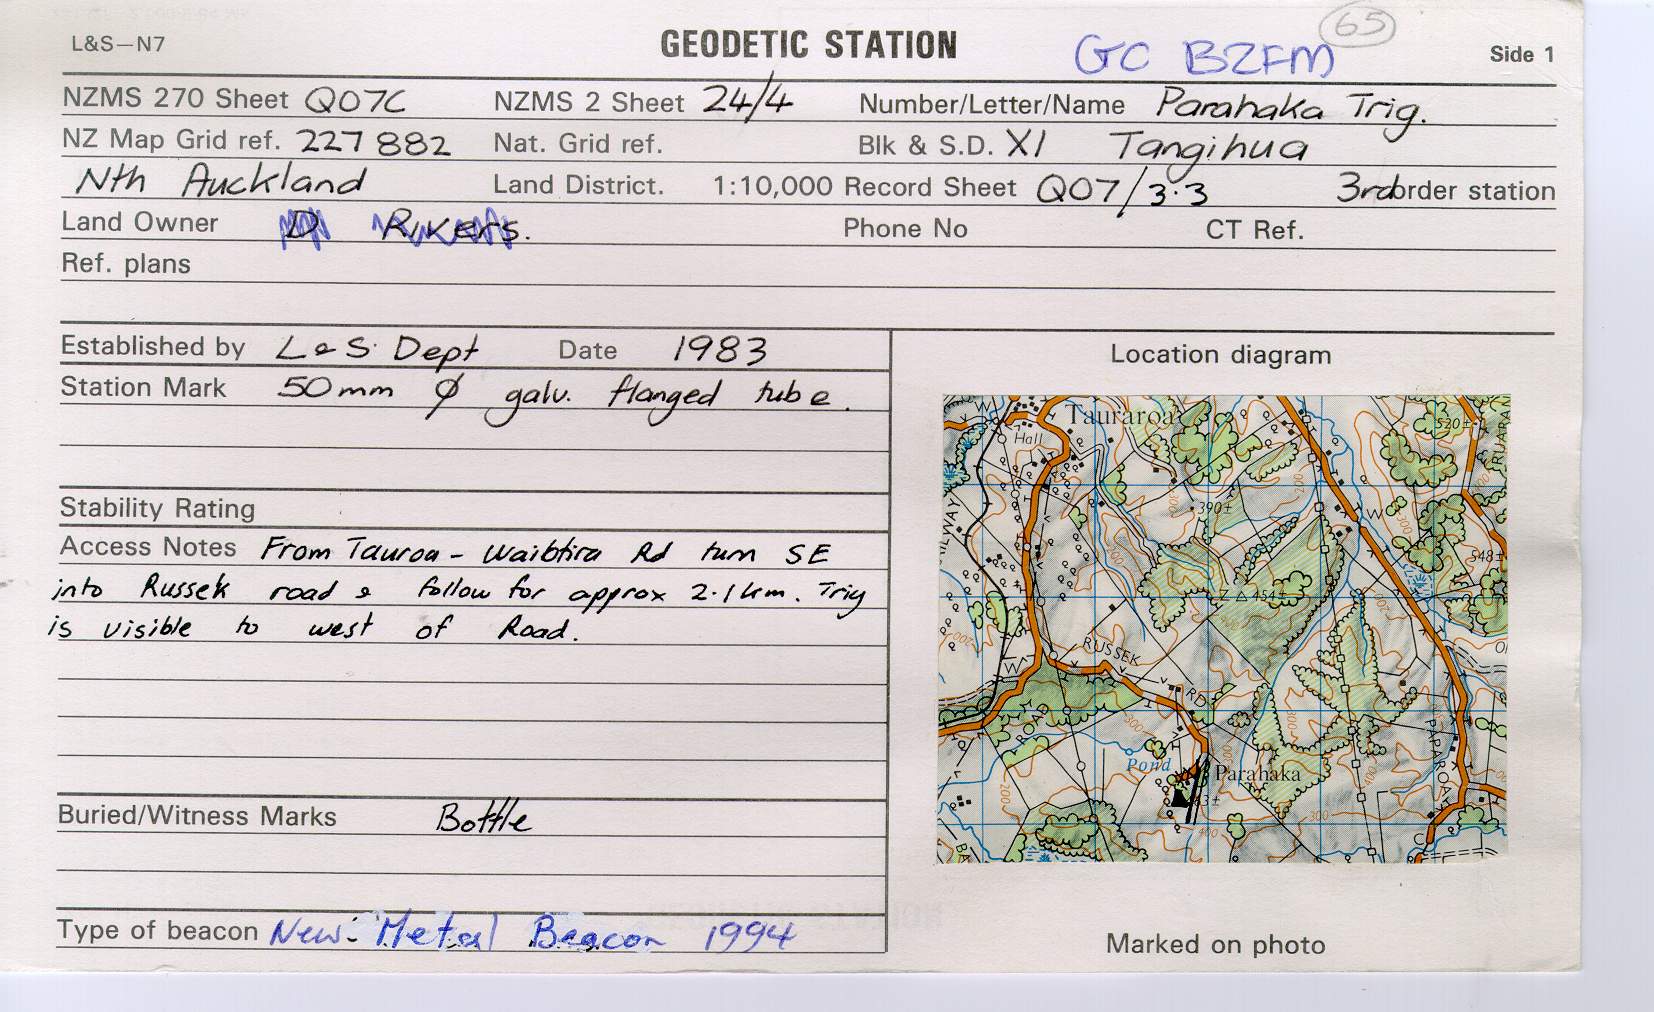 65
L&S—N7
GEODETIC STATION
GC BZFM
Side 1
NZMS 270 Sheet Q07C NZMS 2 Sheet 24/4 Number/Letter/Name Parahaka Trig.
NZ Map Grid ref. 227 882 Nat. Grid ref. Blk & S.D. XI Tangihua
Nth Auckland Land District. 1:10,000 Record Sheet Q07/3·3 3rd order station
Land Owner D Rivers. Phone No CT Ref.
Ref. plans
Established by L & S. Dept Date 1983
Station Mark 50mm ϕ galv. flanged tube.
Stability Rating
Access Notes From Tauroa - Waiotira Rd turn SE
into Russek road & follow for approx 2.1km. Trig
is visible to west of Road.
Buried/Witness Marks Bottle
Type of beacon New Metal Beacon 1994
Location diagram
Tauraroa
Hall
520±
390±
200
300
548±
Z △ 454±
200
200
RUSSEK
RD
ROAD
300
300
Pond
Parahaka
63±
200
400
300
PAROA
Marked on photo